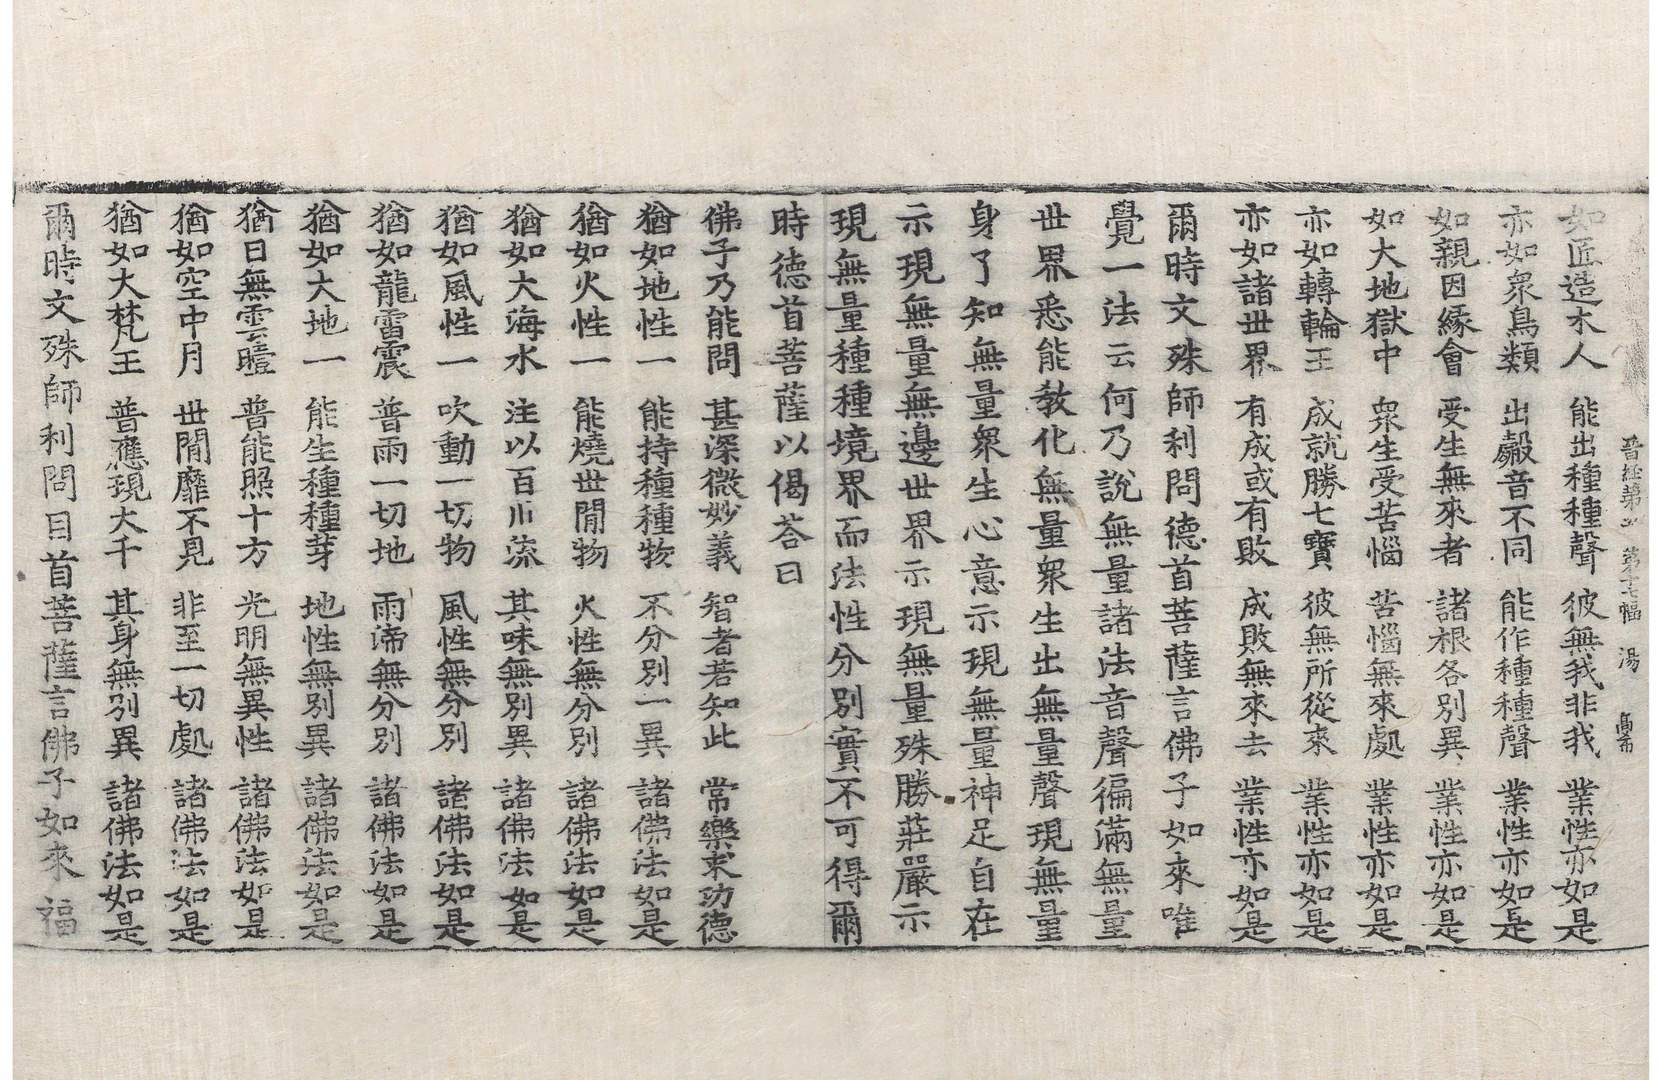 晋経第五 第十七幅 湯
如匠造木人 能出種種聲 彼無我非我 業性亦如是
亦如衆鳥類 出㲉音不同 能作種種聲 業性亦如是
如親因縁會 受生無來者 諸根各別異 業性亦如是
如大地獄中 衆生受苦惱 苦惱無來處 業性亦如是
亦如轉輪王 成就勝七寶 彼無所從來 業性亦如是
亦如諸世界 有成或有敗 成敗無來去 業性亦如是
爾時文殊師利問德首菩薩言佛子如來唯
覺一法云何乃說無量諸法音聲徧滿無量
世界悉能教化無量衆生出無量聲現無量
身了知無量衆生心意示現無量神足自在
示現無量無邊世界示現無量殊勝莊嚴示
現無量種種境界而法性分別實不可得爾
時德首菩薩以偈荅曰
佛子乃能問 甚深微妙義 智者若知此 常樂求功德
猶如地性一 能持種種物 不分別一異 諸佛法如是
猶如火性一 能燒世閒物 火性無分別 諸佛法如是
猶如大海水 注以百川流 其味無別異 諸佛法如是
猶如風性一 吹動一切物 風性無分別 諸佛法如是
猶如龍雷震 普雨一切地 雨渧無分別 諸佛法如是
猶如大地一 能生種種芽 地性無別異 諸佛法如是
猶日無雲曀 普能照十方 光明無異性 諸佛法如是
猶如空中月 世閒靡不見 非至一切處 諸佛法如是
猶如大梵王 普應現大千 其身無別異 諸佛法如是
爾時文殊師利問目首菩薩言佛子如來福